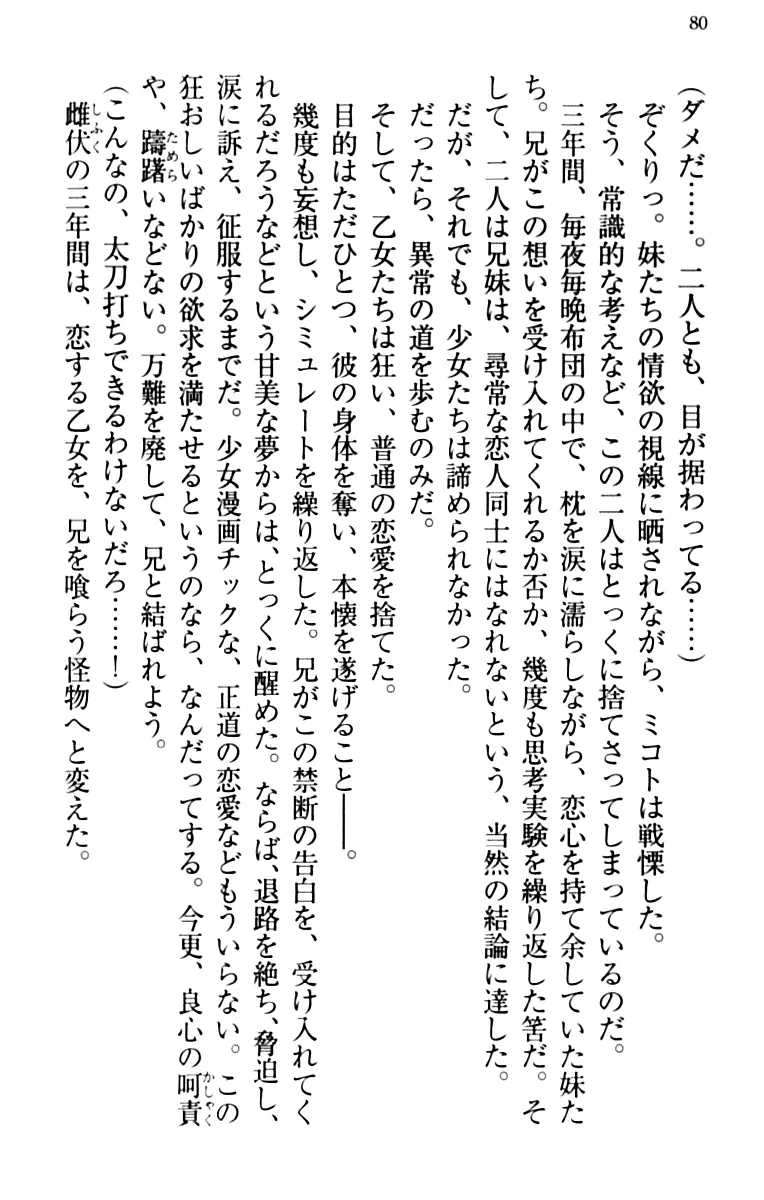 80
(ダメだ……。二人とも、目が据わってる……)
ぞくりっ。妹たちの情欲の視線に晒されながら、ミコトは戦慄した。
そう、常識的な考えなど、この二人はとっくに捨てさってしまっているのだ。
三年間、毎夜毎晩布団の中で、枕を涙に濡らしながら、恋心を持て余していた妹た
ち。兄がこの想いを受け入れてくれるか否か、幾度も思考実験を繰り返した筈だ。そ
して、二人は兄妹は、尋常な恋人同士にはなれないという、当然の結論に達した。
だが、それでも、少女たちは諦められなかった。
だったら、異常の道を歩むのみだ。
そして、乙女たちは狂い、普通の恋愛を捨てた。
目的はただひとつ、彼の身体を奪い、本懐を遂げること――。
幾度も妄想し、シミュレートを繰り返した。兄がこの禁断の告白を、受け入れてく
れるだろうなどという甘美な夢からは、とっくに醒めた。ならば、退路を絶ち、脅迫し、
涙に訴え、征服するまでだ。少女漫画チックな、正道の恋愛などもういらない。この
狂おしいばかりの欲求を満たせるというのなら、なんだってする。今更、良心の呵責
や、躊躇いなどない。万難を廃して、兄と結ばれよう。
(こんなの、太刀打ちできるわけないだろ……!)
雌伏の三年間は、恋する乙女を、兄を喰らう怪物へと変えた。